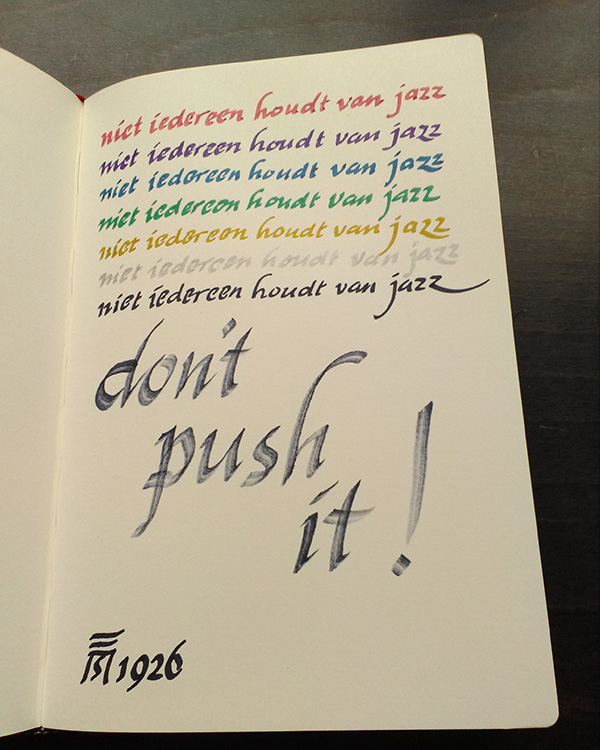 niet iedereen houdt van jazz
niet iedereen houdt van jazz
niet iedereen houdt van jazz
niet iedereen houdt van jazz
niet iedereen houdt van jazz
niet iedereen houdt van jazz
niet iedereen houdt van jazz
don't
push
it!
1926